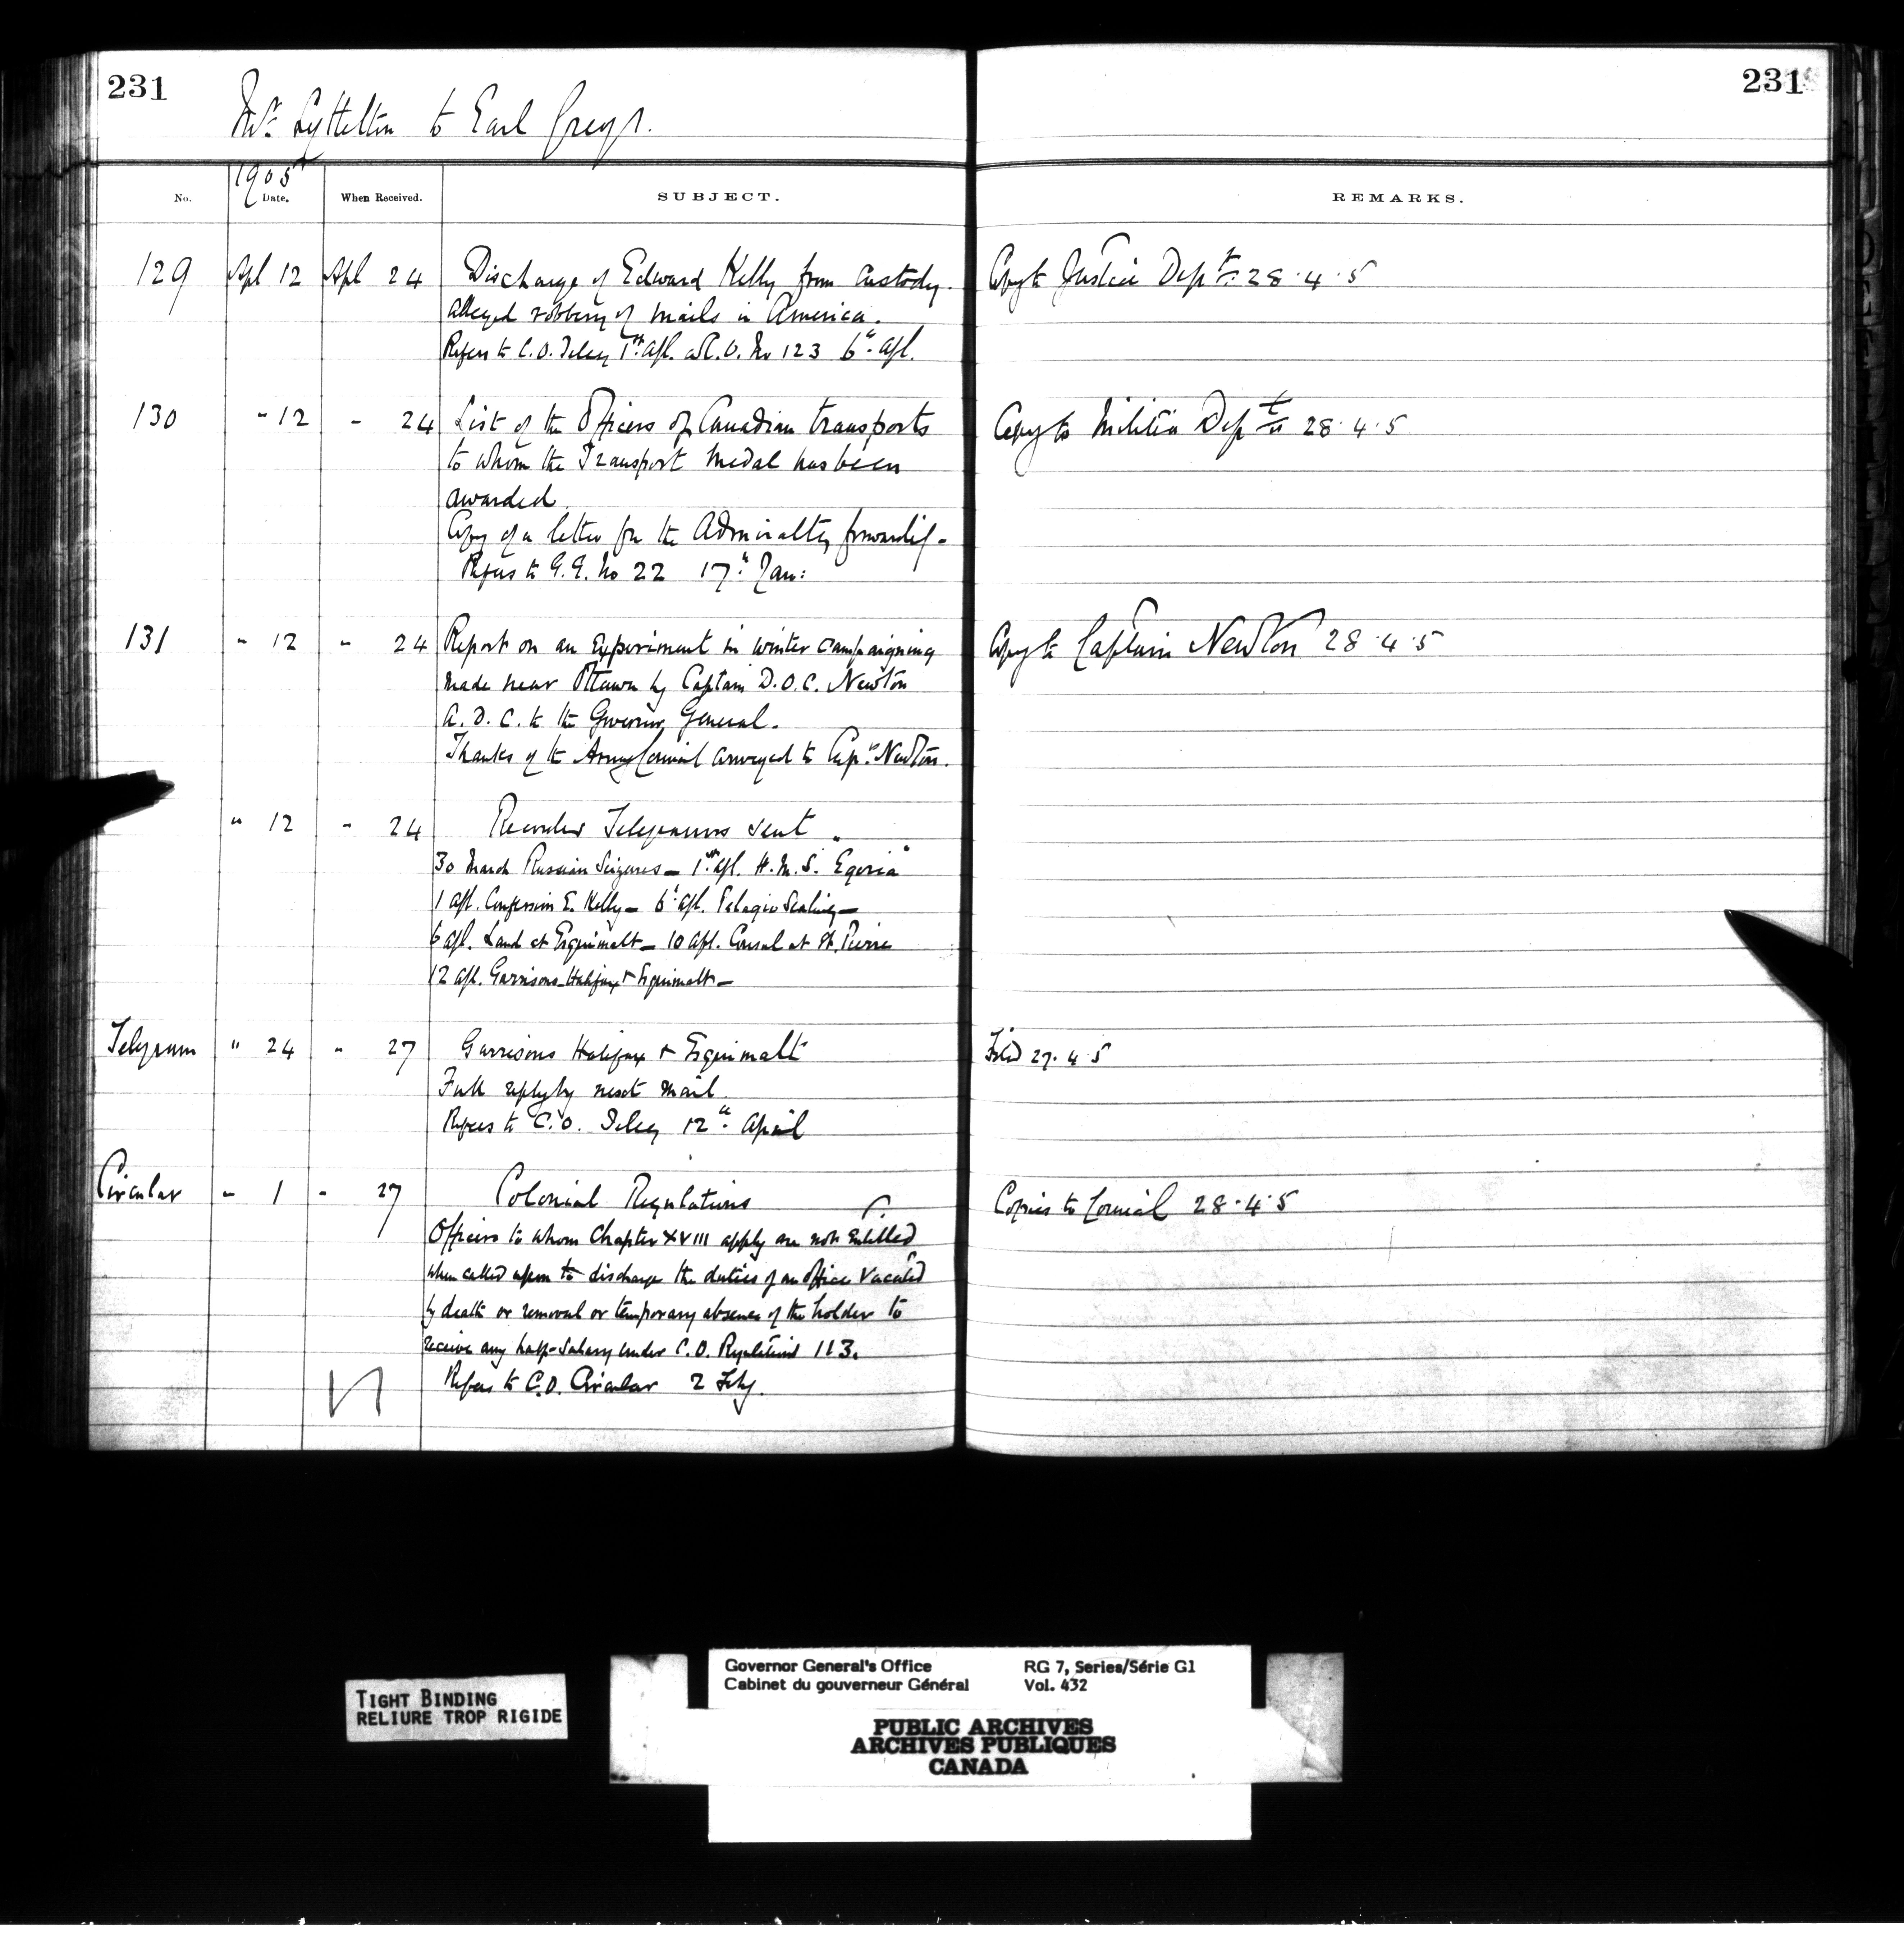 231
231
Mr. Lyttelton to Earl Grey.
1905
No.
Date.
When Received.
SUBJECT.
REMARKS.
129 Apl 12 Apl 24 Discharge of Edward Kelly from custody. Copy to Justice Dept. 28.4.5
alleged robbery of mails in America.
Refers to C.O. Teleg 1st Apl. C.O. No 123 6th Apl.
130 " 12 " 24 List of the Officers of Canadian transports Copy to Militia Dept 28.4.5
to whom the Transport Medal has been
awarded.
Copy of a letter fm the Admiralty forwardg.
Refers to G.G. No 22 17th Jan:
131 " 12 " 24 Report on an experiment in winter campaigning Copy to Captain Newton 28.4.5
made near Ottawa by Captain D.O.C. Newton
A.D.C. to the Governor General.
Thanks of the Army Council conveyed to Capt. Newton.
" 12 " 24 Recorder Telegrams sent
30 March Russian Seizures – 1st Apl. H.M.S. "Egeria"
1 Apl. Confession E. Kelly – 6th Apl. Pelagic Sealing –
6 Apl. Land at Esquimalt – 10 Apl. Consul at St. Pierre
12 Apl. Garrisons Halifax & Esquimalt –
Telegram " 24 " 27 Garrisons Halifax & Esquimalt Filed 27.4.5
Full reply by next mail.
Refers to C.O. Teleg 12th April
Circular " 1 " 27 Colonial Regulations Copies to Council 28.4.5
Officers to whom Chapter XVIII apply are not entitled
when called upon to discharge the duties of an office vacated
by death or removal or temporary absence of the holder to
receive any half-salary under C.O. Regulations 113.
Refers to C.O. Circular 2 Feby.
TIGHT BINDING
RELIURE TROP RIGIDE
Governor General's Office RG 7, Series/Série G1
Cabinet du gouverneur Général Vol. 432
PUBLIC ARCHIVES
ARCHIVES PUBLIQUES
CANADA